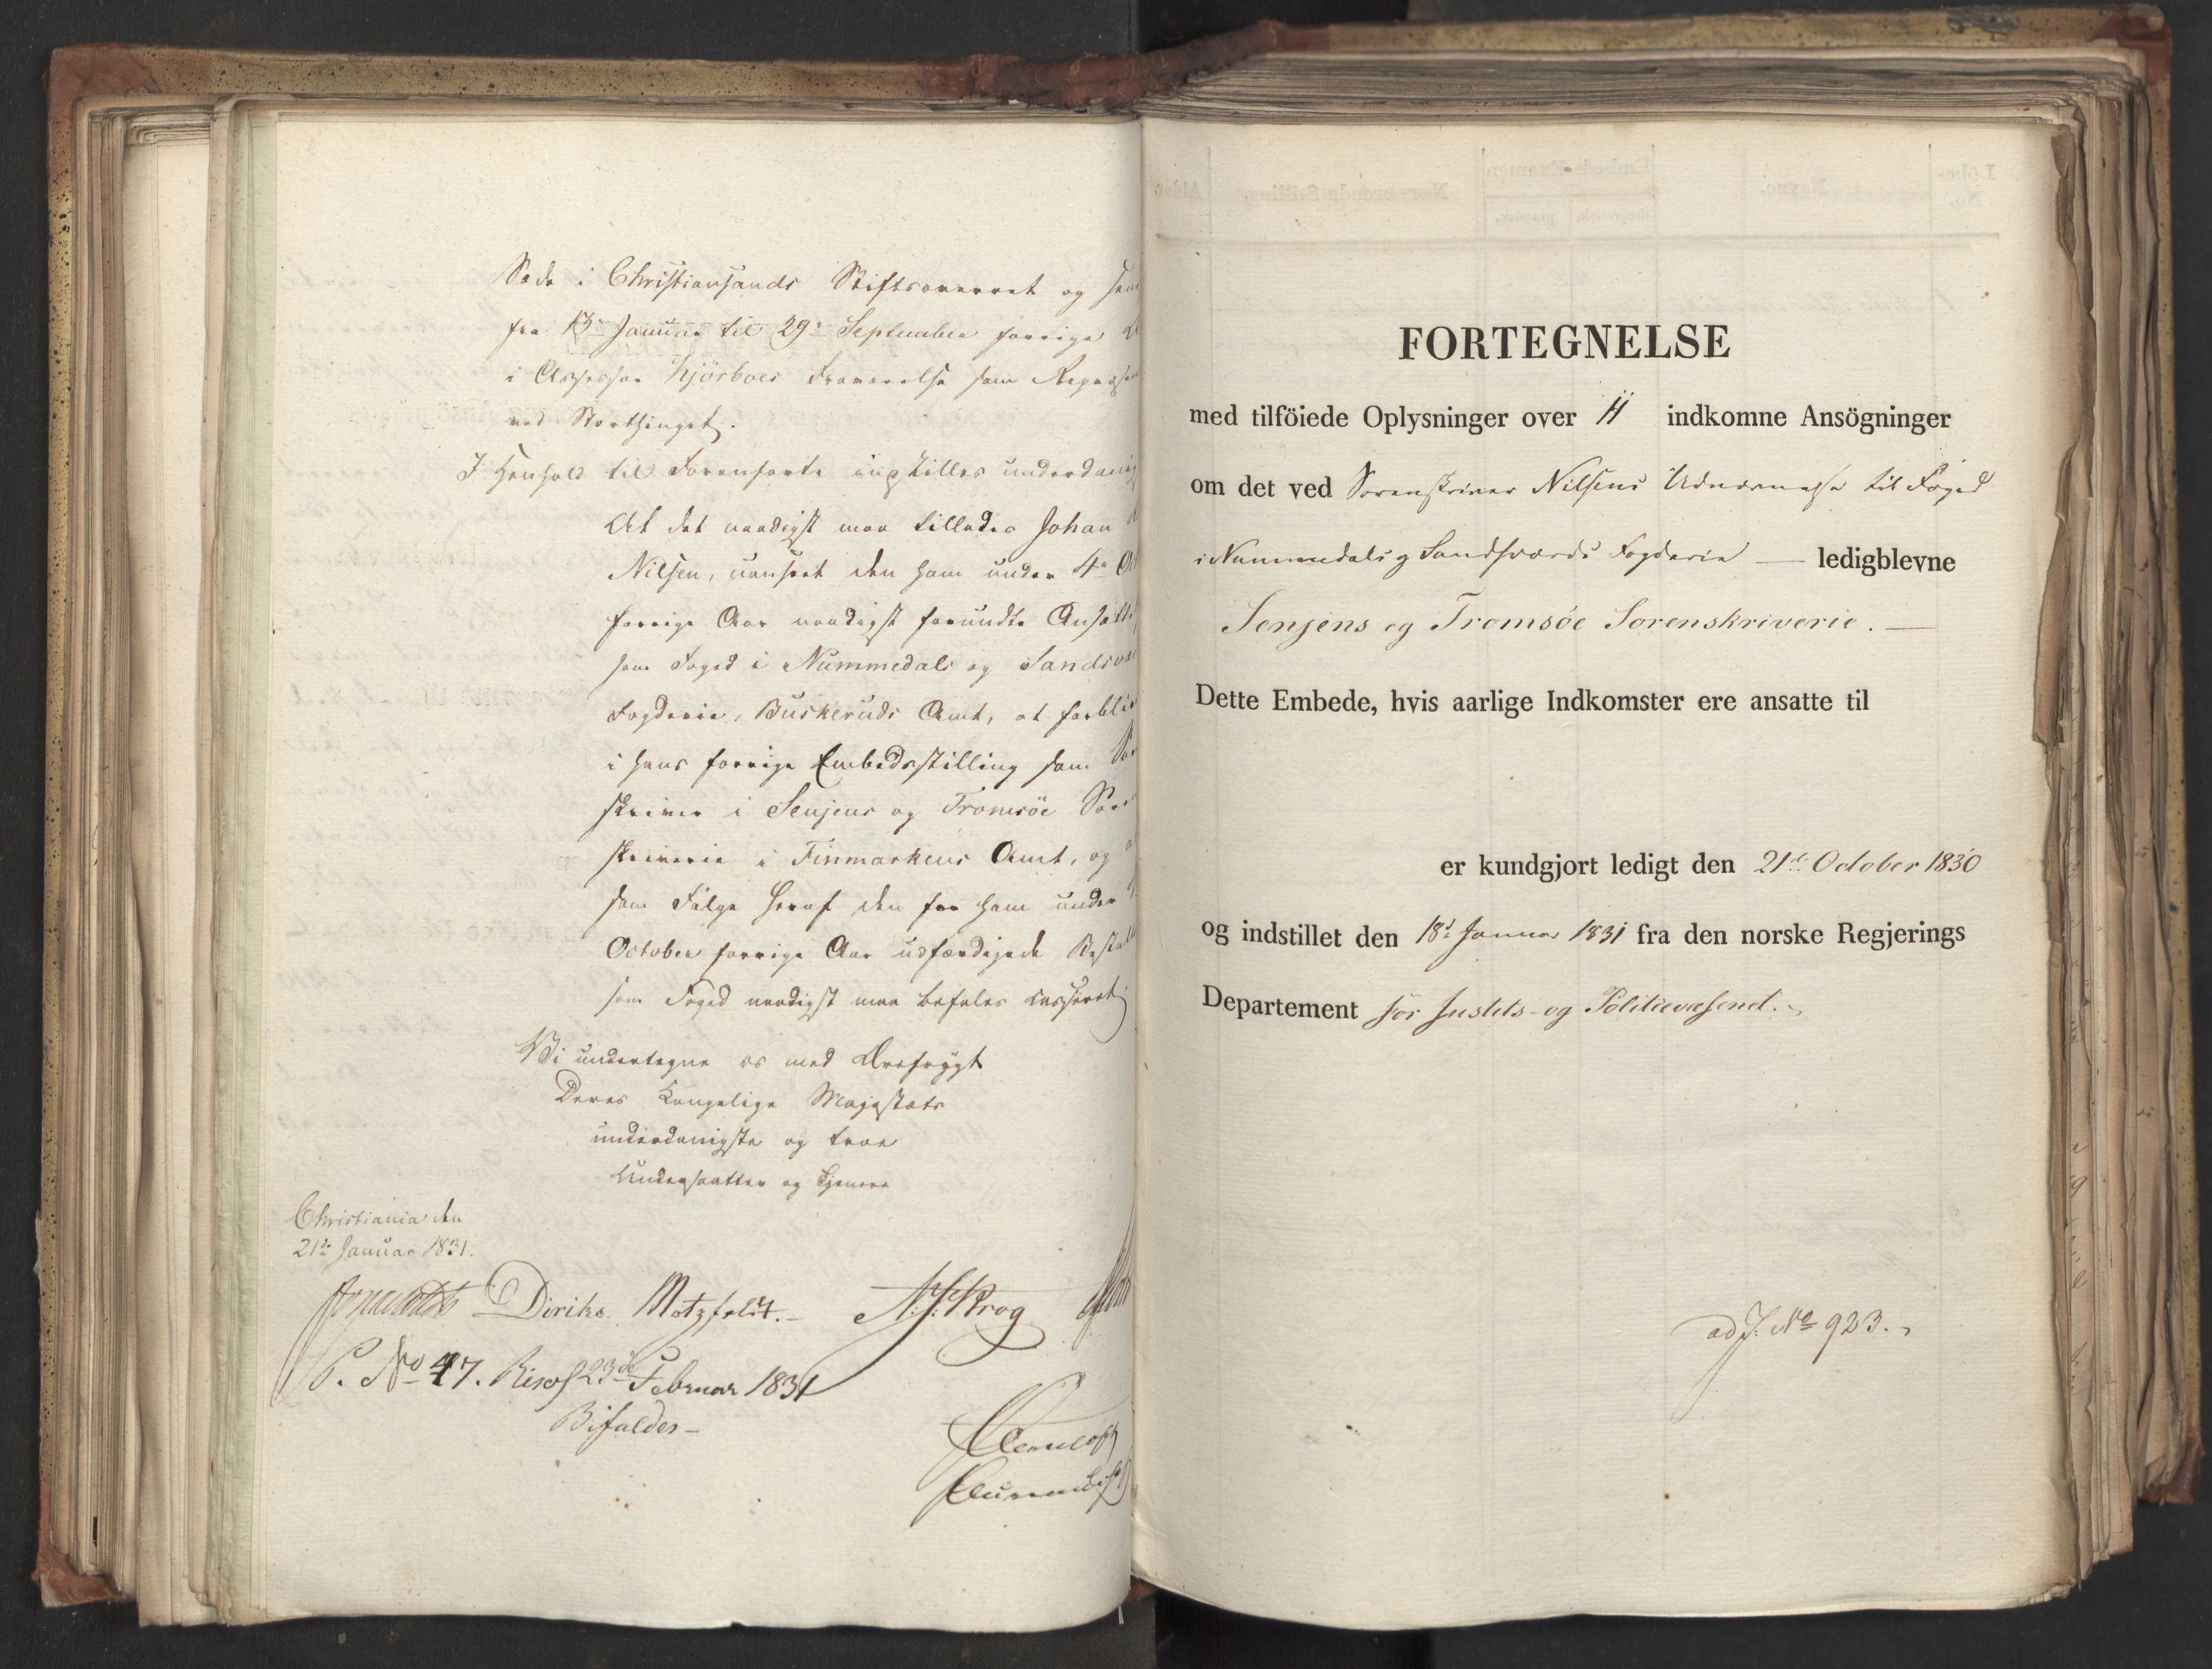 Sæde i Christiansands Stiftsoverret og
fra 13de Januar til 29de September forrige
i Assessor Hjörboes Fraværelse som
ved Storthinget.
I Henhold til Foranførte indstilles
At det naadigst maa tillades Johan
Nilsen, uanseet den ham under 4de
forrige Aar naadigst forundte
som Foged i Nummedals og
Fogderie, Buskeruds Amt, at
i hans forrige Embedsstilling som
skriver i Senjens og Tromsöe
skriverie i Finmarkens Amt, og
som Følge heraf den for ham under
October forrige Aar udfærdigede
som Foged naadigst maa befales casseret.
Vi undertegne os med Ærefrygt
Deres Kongelige Majestæts
underdanigste og troe
Undersaatter og Tjenere
Christiania den
21de Januar 1831.
Diriks Motzfeldt. Krog
P. No 47. Resol. 23de Februar 1831
Bifaldes
FORTEGNELSE
med tilföiede Oplysninger over 11 indkomne Ansögninger
om det ved Sorenskriver Nilsens Udnævnelse til Foged
i Nummedals og Sandsværds Fogderie — ledigblevne
Senjens og Tromsöe Sorenskriverie. —
Dette Embede, hvis aarlige Indkomster ere ansatte til
er kundgjort ledigt den 21de October 1830
og indstillet den 18de Januar 1831 fra den norske Regjerings
Departement for Justits- og Politievæsenet.
ad J. No 923.